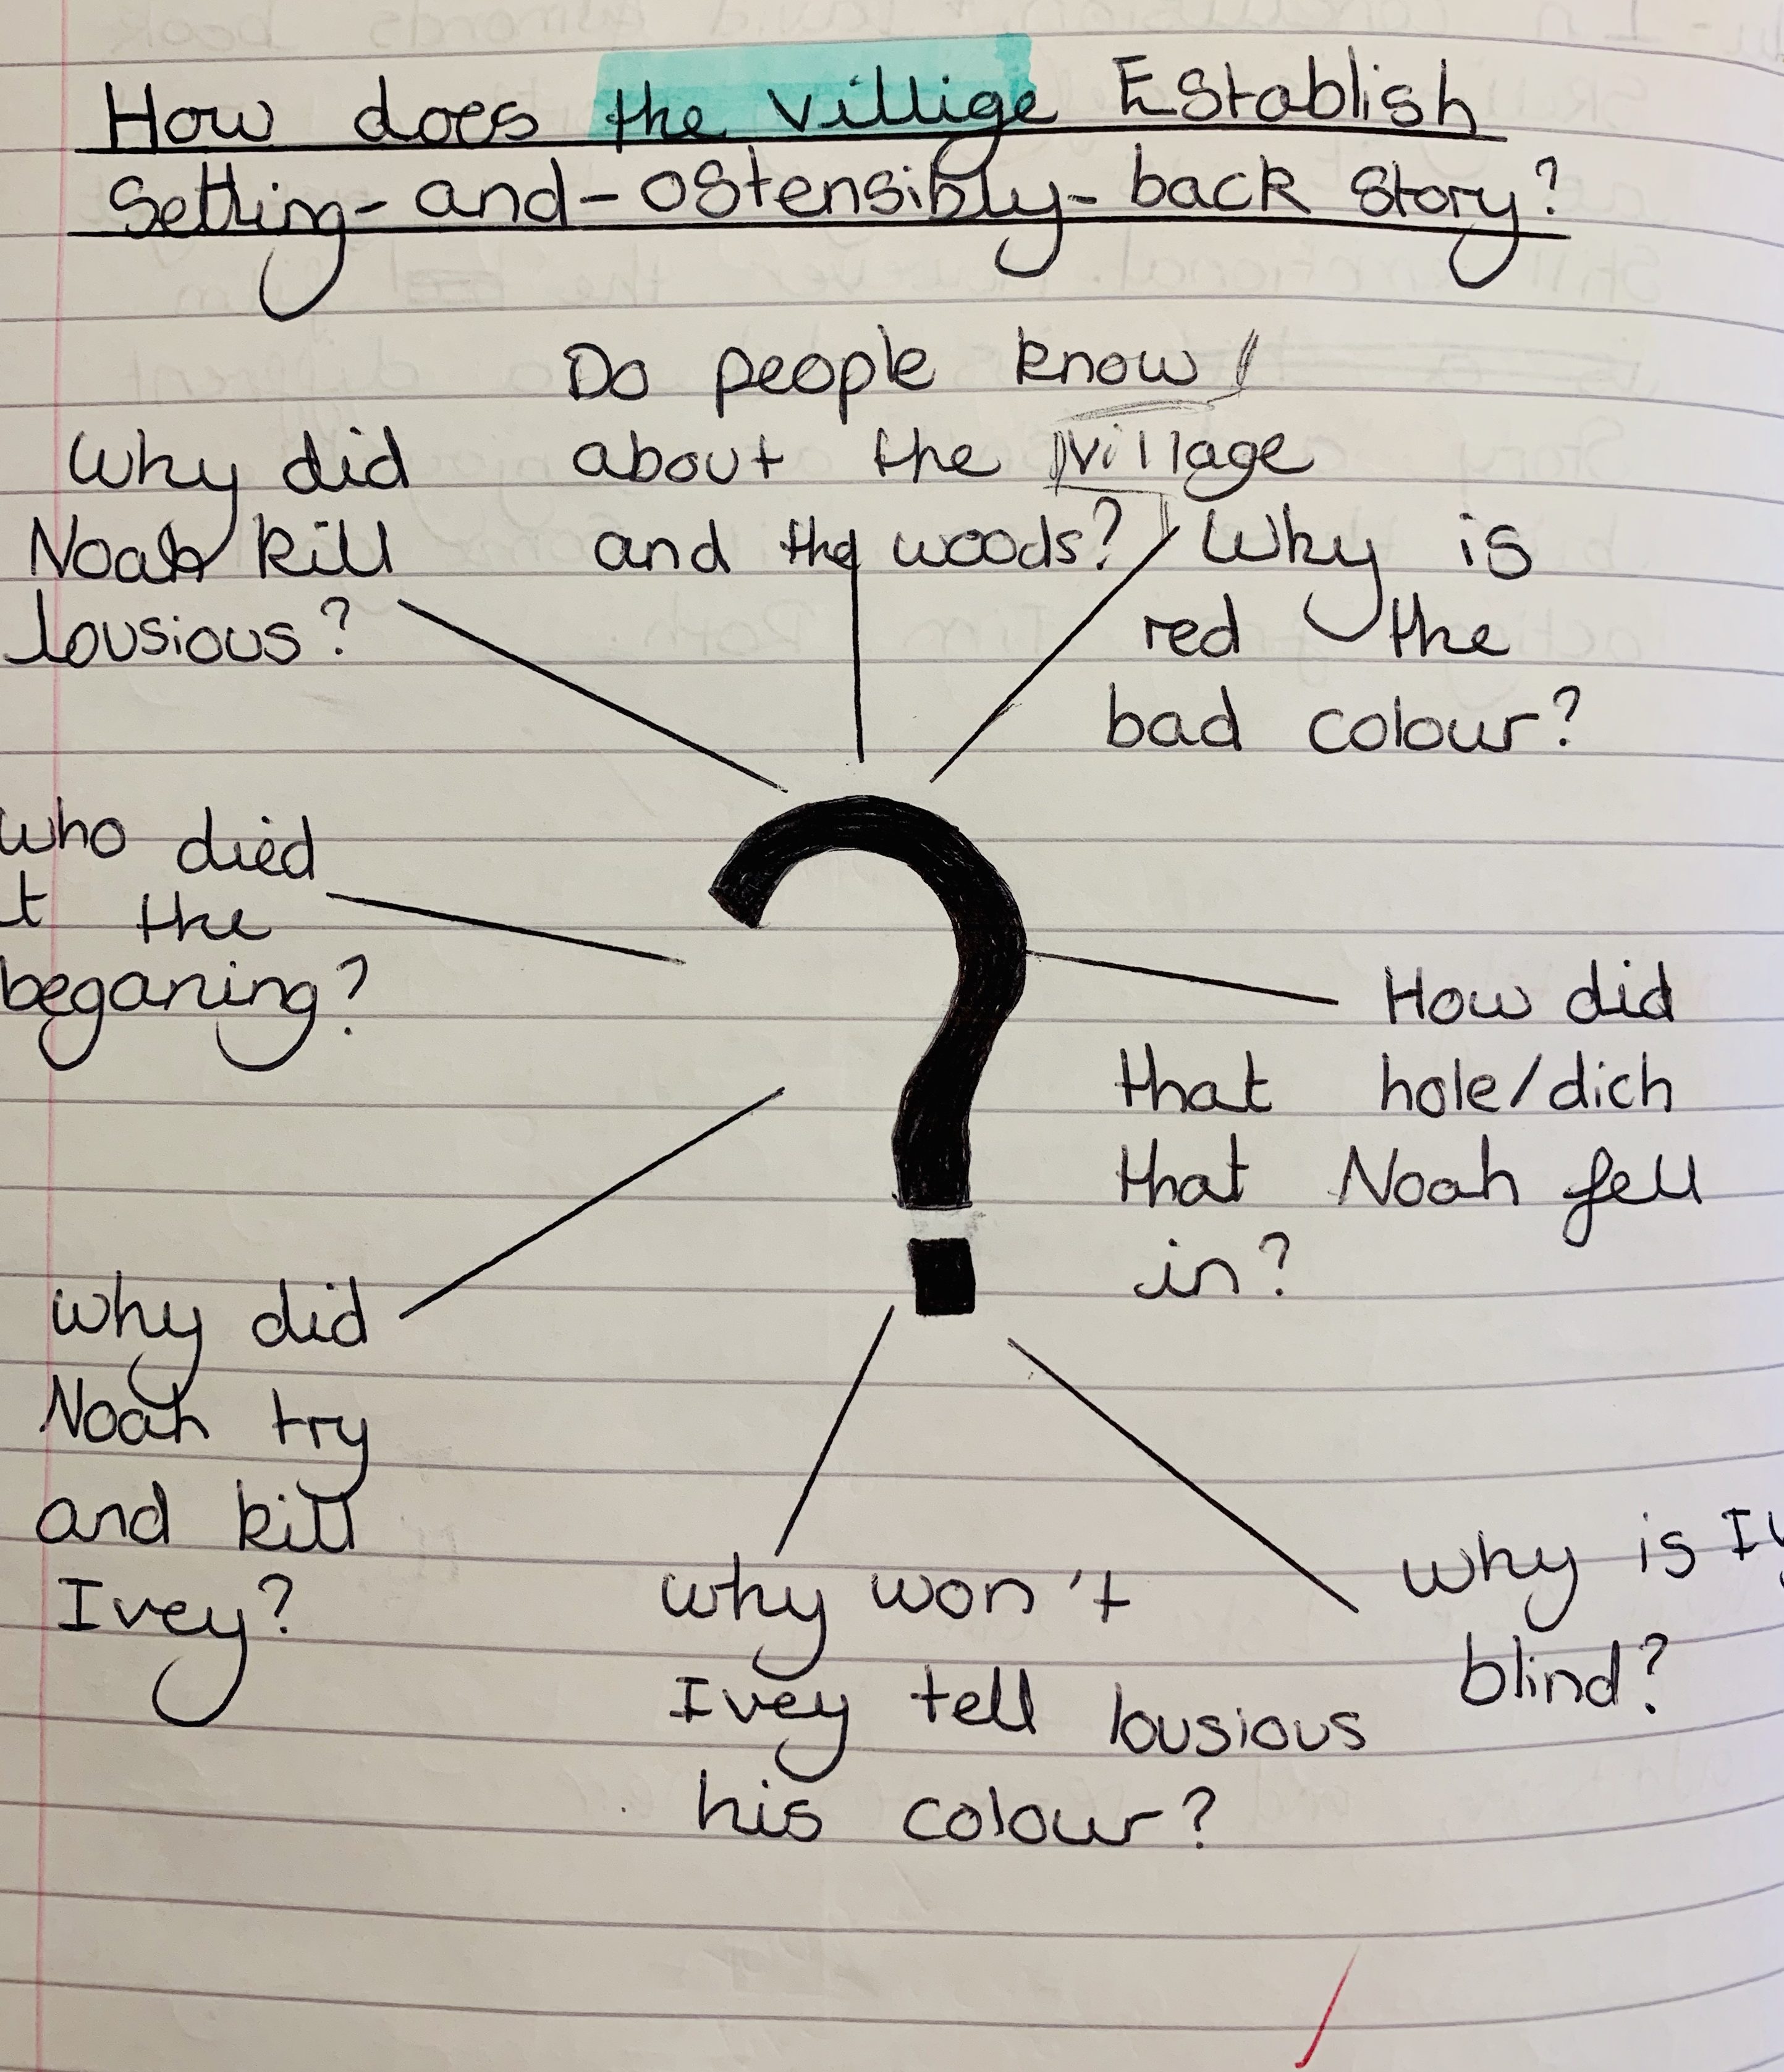 How does the villige Establish
Setting-and-ostensibly-back story?
Do people know
about the village
and the woods?
Why did
Noah kill
lousious?
Why is
red the
bad colour?
who died
t the
beganing?
How did
that hole/dich
that Noah fell
in?
why did
Noah try
and kill
Ivey?
why won't
Ivey tell lousious
his colour?
why is Iv
blind?